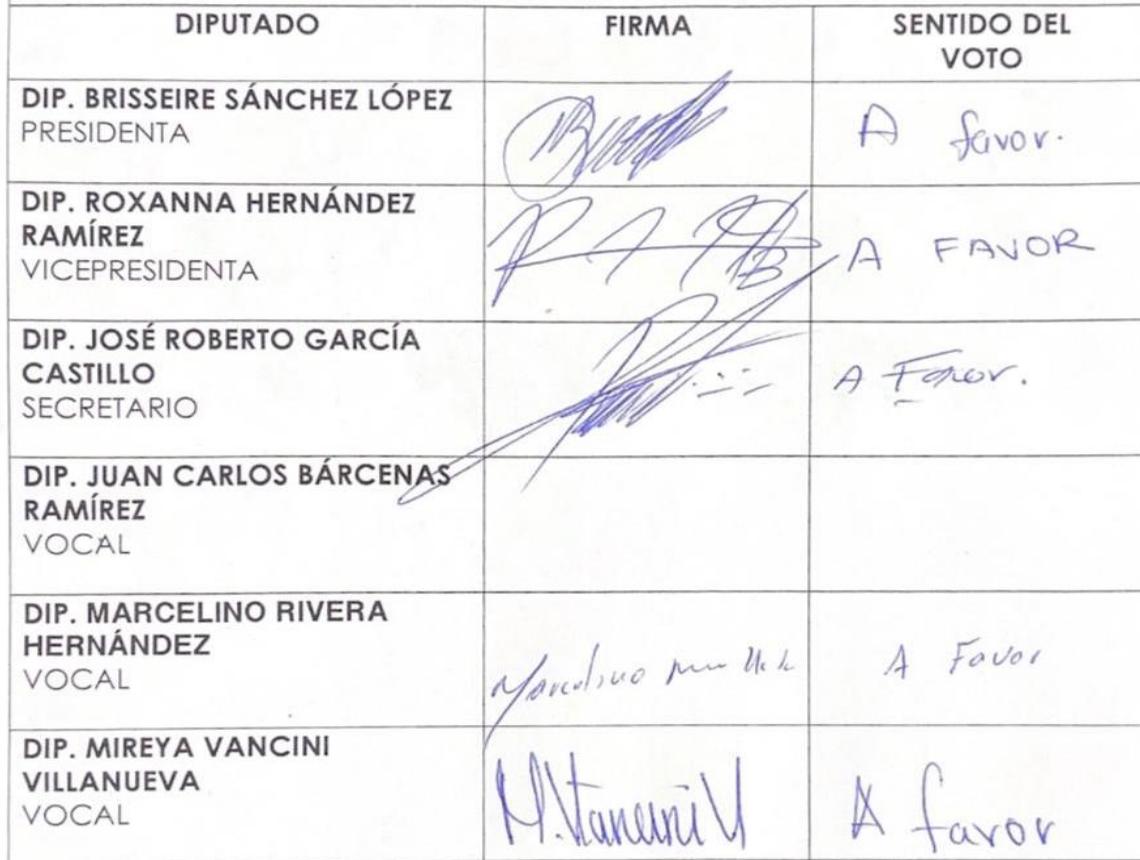 DIPUTADO FIRMA SENTIDO DEL
VOTO
DIP. BRISSEIRE SÁNCHEZ LÓPEZ
PRESIDENTA
A favor.
DIP. ROXANNA HERNÁNDEZ
RAMÍREZ
VICEPRESIDENTA
A FAVOR
DIP. JOSÉ ROBERTO GARCÍA
CASTILLO
SECRETARIO
A Favor.
DIP. JUAN CARLOS BÁRCENAS
RAMÍREZ
VOCAL
DIP. MARCELINO RIVERA
HERNÁNDEZ
VOCAL
Marcelino
A Favor
DIP. MIREYA VANCINI
VILLANUEVA
VOCAL
M. Vancini V
A favor